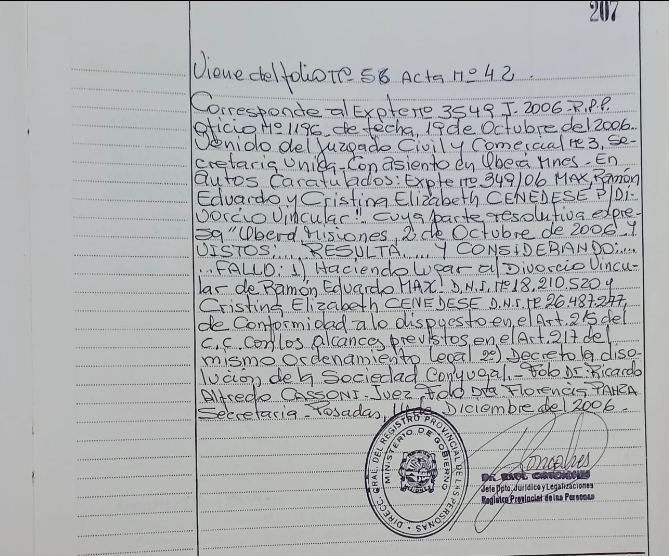 207
Viene del folio Nº 58 Acta Nº 42.
Corresponde al Expte nº 3549 J. 2006-R.P.P.
Oficio Nº 1196 de fecha, 19 de Octubre del 2006.
Venido del Juzgado Civil y Comercial nº 3, Se-
cretaria Unica-Con asiento en Oberá Mnes-En
autos Caratulados: Expte nº 349/06 MAX, Ramón
Eduardo y Cristina Elizabeth CENEDESE P/Di-
vorcio Vincular". cuya parte resolutiva expre-
sa "Oberá Misiones, 2 de Octubre de 2006 Y
VISTOS:... RESULTA.... Y CONSIDERANDO:....
....FALLO: 1) Haciendo lugar al Divorcio Vincu-
lar de Ramón Eduardo MAX: D.N.I. Nº 18.210.520 y
Cristina Elizabeth CENEDESE D.N.I. Nº 26.487.277,
de Conformidad a lo dispuesto en el Art. 215 del
C.C. Con los alcances previstos en el Art. 217 del
mismo Ordenamiento legal 2º) Decreto la diso-
lución de la Sociedad Conyugal.- Fdo Dr. Ricardo
Alfredo CASSONI-Juez Fdo Dra Florencia
Secretaria-Posadas, 14 de Diciembre del 2006.
DIRECC. GRAL. DEL REGISTRO PROVINCIAL DE LAS PERSONAS
MINISTERIO DE GOBIERNO
DR. RAUL
Jefe Dpto. Jurídico y Legalizaciones
Registro Provincial de las Personas